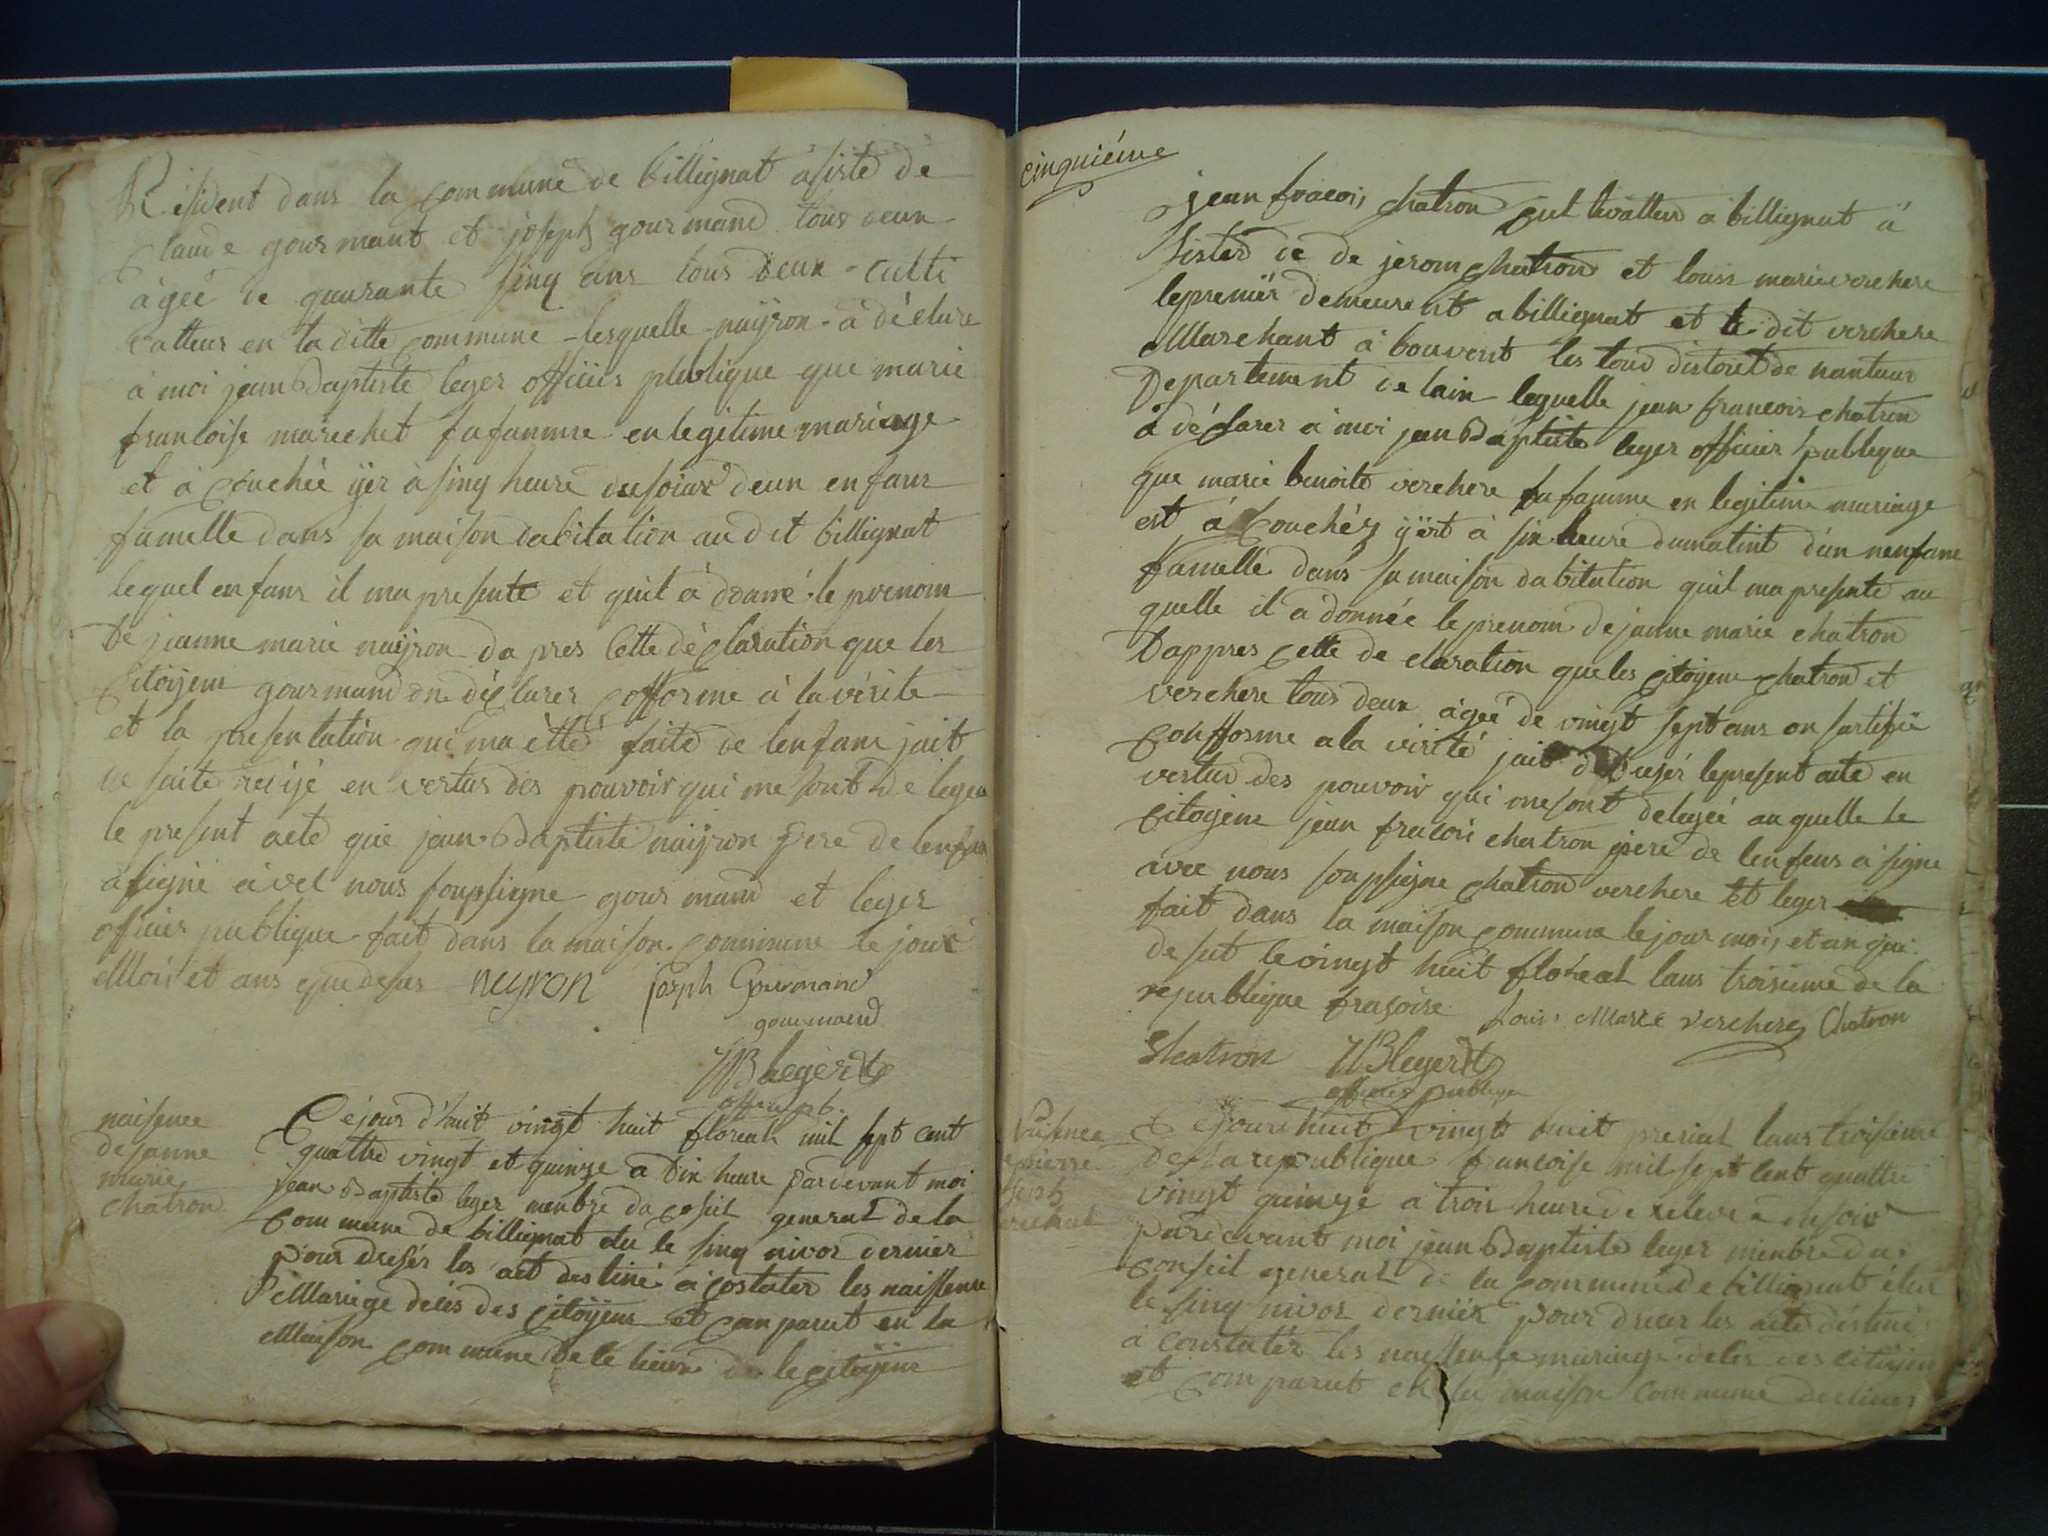 Résident dans la commune de billignat asisté de
claude gourmant et joseph gourmand tous deux
àgéé de quarante sinq ans tous deux - culti
vatteur en la ditte commune - lesquelle - naÿron - à déclare
à moi jean Baptiste leger officier plublique que marie
francoise marechet sa famme en legitime mariage
et à couchéé ÿer à sinq heure du soiar deun enfans
famelle dans sa maison dabitation au dit billignat
lequel enfans il ma presenté et quil à donné le prenom
De jeanne marie naÿron da pres Cette déclaration que les
Citoÿens gourmand on déclarer cofforme à la vérité
et la presentation qui ma etté faite de lenfans jait
de suite redijé en vertus des pouvoir qui me sont de legea
le present acte que jean Baptiste naÿron pere de lenfan
à signé àvec nous soupsigne gourmand et leger
officier publique fait dans la maison commune le jour
Mois et ans que desus neyron joseph Gourmand
gourmand
JB Leger
officier pb.
naisence
de janne
marie
chatron
Ce jour d'huit vingt huit floreal mil sept cent
quattre vingt et quinze a Dix heure pardevant moi
jean Baptiste leger menbre du coseil general de la
commune de billignat elu le sinq nivos dernier
pour dresér les act destiné à costater les naissence
Mariage décès des Citoÿens et comparut en la
Maison commune de le lieux le citoÿens
cinquiéme
jean fracois chatron cultivatteur a billignat à
sister de de jerom chatron et louis marie verchere
le premiér demeurent a billignat et le dit verchere
Marchant à bouvent les tous distoict de nantuas
Departement de lain lequelle jean francois chatron
à déclarer à moi jean Baptiste leger officier publeque
que marie benoite verchere sa famme en legitime mariage
est à couchéz ÿert à sin heure du matint dun nenfans
famelle dans sa maison dabitation quil ma presenté au
quelle il a donnée le prenom de janne marie chatron
Dappres cette de claration que les citoyens chatron et
verchere tous deux àgéé de vingt sept ans on sartifié
confforme a la vérité jait dresér le present acte en
vertus des pouvoir qui me sont delegéé au quelle le
citoÿens jean fracois chatron pere de lenfens a signe
avec nous soupsigne chatron verchere et leger
fait dans la maison commune le jour mois et an que
desut le vingt huit floreal lans troisieme de la
republique fraçoise Louis Marie Verchere Chatron
Chatron JB Leger
officier publique
Naisence
pierre
joseph
Ce jourdhuit vingt huit prerial lans troisieme
de la republique francoise mil sept cent quattre
vingt quinze à trois heure de relevé du soir
par devant moi jean Baptiste leger menbre du
conseil general de la commune de billignat élu
le sinq nivos derniér pour dreser les acte destiné
à constatér les naissence mariage déces des citoÿen
et comparut en la maison commune du lieux